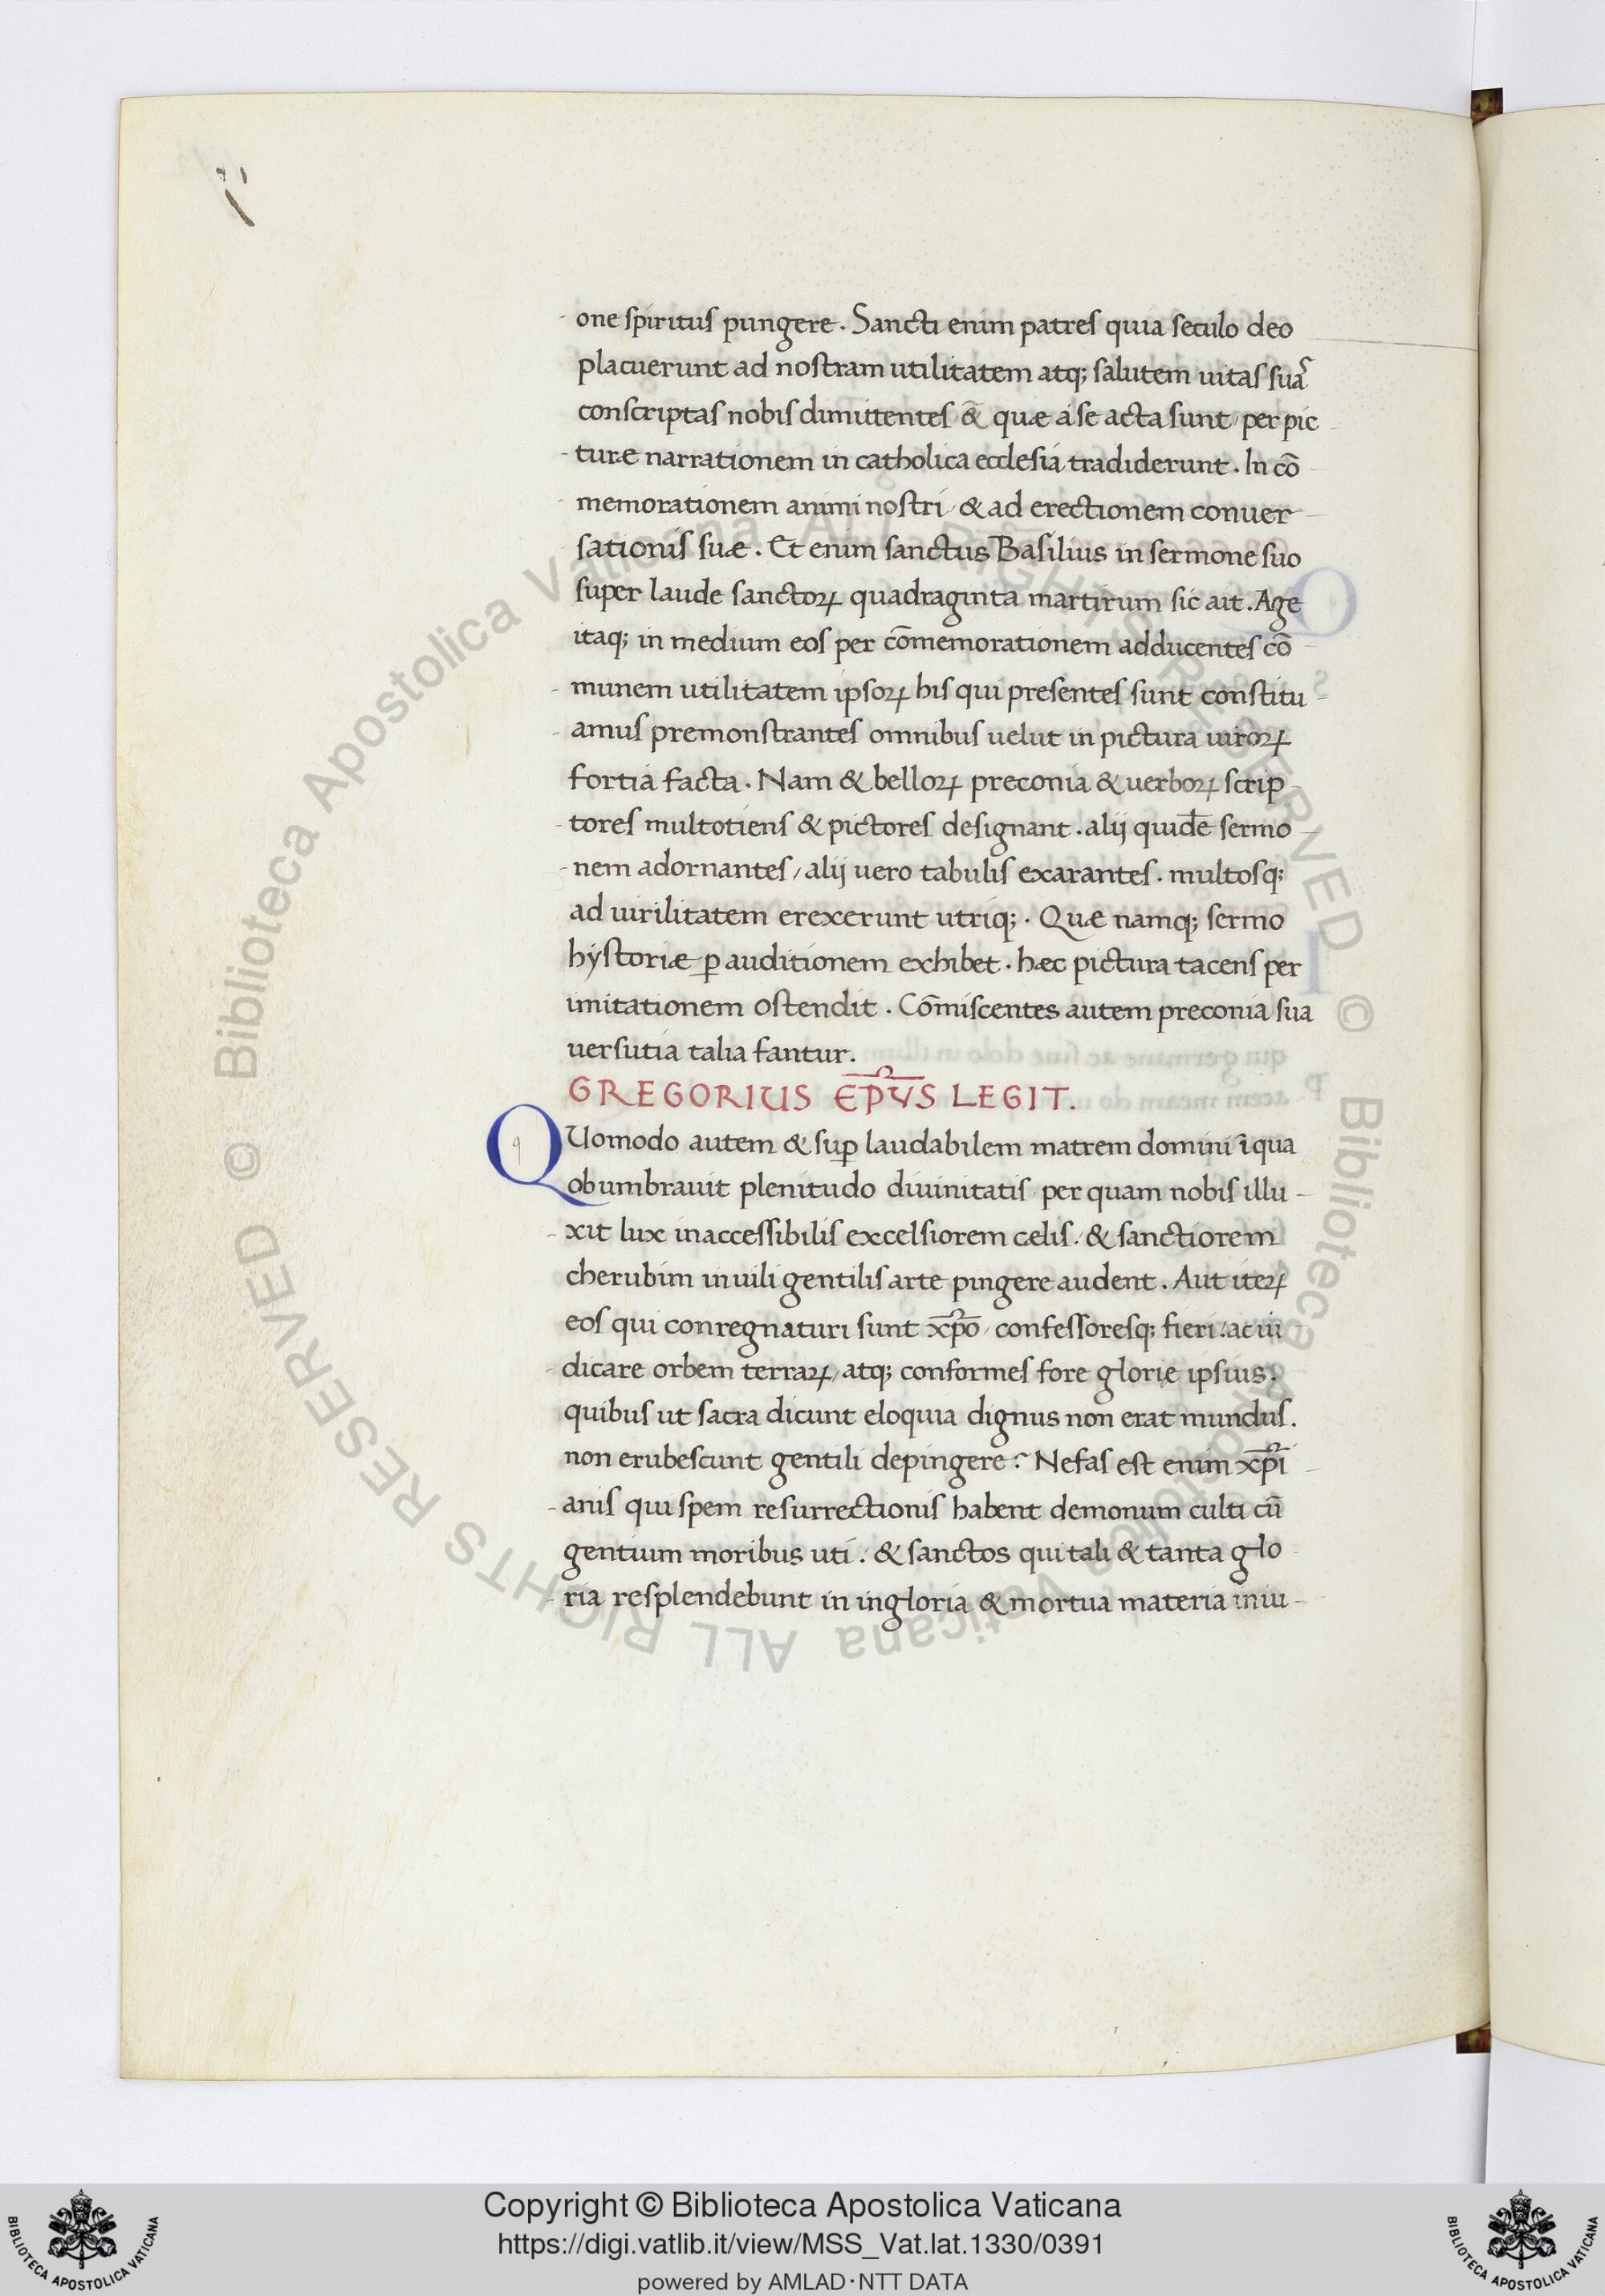 one spiritus pungere. Sancti enim patres quia seculo deo
placuerunt ad nostram utilitatem atq; salutem uitas suaˢ
conscriptas nobis dimittentes & quæ a se acta sunt / per pic
turæ narrationem in catholica ecclesia tradiderunt. In cō
memorationem animi nostri / & ad erectionem conuer
sationis suæ. Et enim sanctus Basilius in sermone suo
super laude sanctoꝝ quadraginta martirum sic ait. Age
itaq; in medium eos per cōmemorationem adducentes cō
munem utilitatem ipsoꝝ his qui presentes sunt constitu
amus premonstrantes omnibus uelut in pictura uiroꝝ
fortia facta. Nam & belloꝝ preconia & uerboꝝ scrip
tores multotiens & pictores designant. alij quidē sermo
nem adornantes / alij uero tabulis exarantes. multosq;
ad uirilitatem erexerunt utriq;. Quæ namq; sermo
hystoriæ ꝑ auditionem exhibet. hæc pictura tacens per
imitationem ostendit. Cōmiscentes autem preconia sua
uersutia talia fantur.
GREGORIUS EPVS LEGIT.
QUomodo autem & suꝑ laudabilem matrem domini ī qua
obumbrauit plenitudo diuinitatis / per quam nobis illu-
xit lux inaccessibilis excelsiorem celis: & sanctiorem
cherubim in uili gentilis arte pingere audent. Aut iteꝝ
eos qui conregnaturi sunt xp̄o / confessoresq; fieri: ac iu
dicare orbem terraꝝ / atq; conformes fore gloriæ ipsius.
quibus ut sacra dicunt eloquia dignus non erat mundus.
non erubescunt gentili depingere? Nefas est enim xp̄i
anis qui spem resurrectionis habent demonum culti cū
gentium moribus uti: & sanctos qui tali & tanta glo
ria resplendebunt in ingloria & mortua materia iniu-
© Biblioteca Apostolica Vaticana ALL RIGHTS RESERVED © Biblioteca Apostolica Vaticana ALL RIGHTS RESERVED
Copyright © Biblioteca Apostolica Vaticana
https://digi.vatlib.it/view/MSS_Vat.lat.1330/0391
powered by AMLAD·NTT DATA
BIBLIOTECA APOSTOLICA VATICANA
BIBLIOTECA APOSTOLICA VATICANA